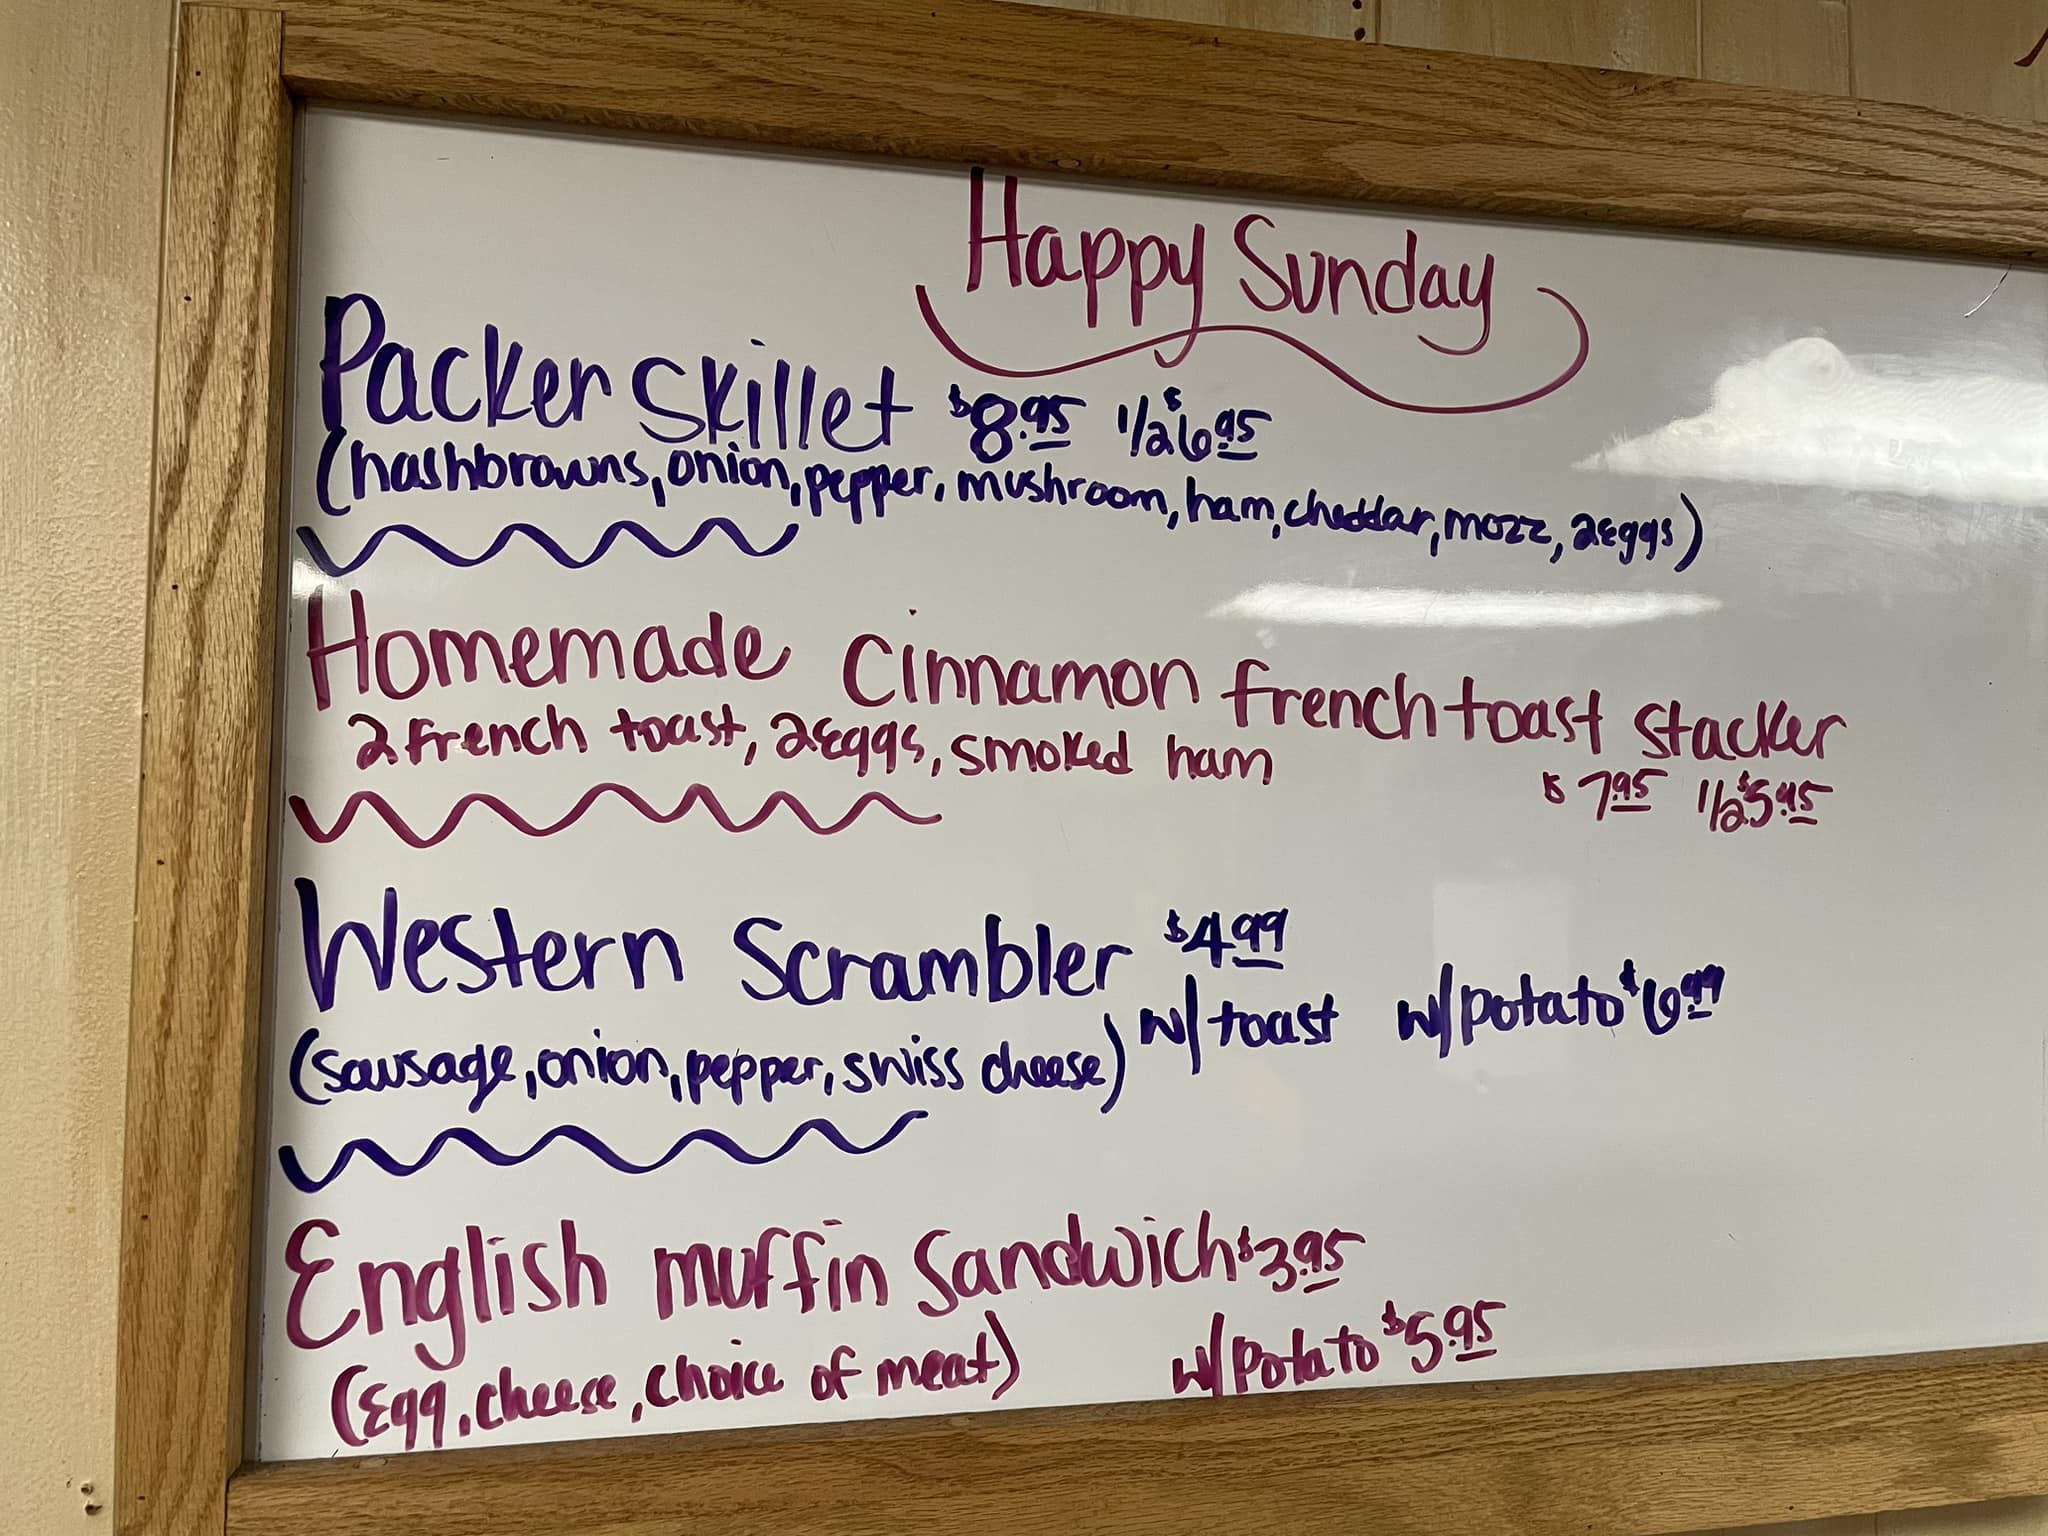 Happy Sunday
Packer Skillet $8.95 1/2 $6.95
(hashbrowns, onion, pepper, mushroom, ham, cheddar, mozz, 2 eggs)
Homemade cinnamon french toast stacker
2 french toast, 2 eggs, smoked ham
$7.95 1/2 $5.95
Western Scrambler $4.99
w/ toast w/ potato $6.99
(sausage, onion, pepper, swiss cheese)
English muffin Sandwich $3.95
(Egg, cheese, choice of meat) w/ potato $5.95